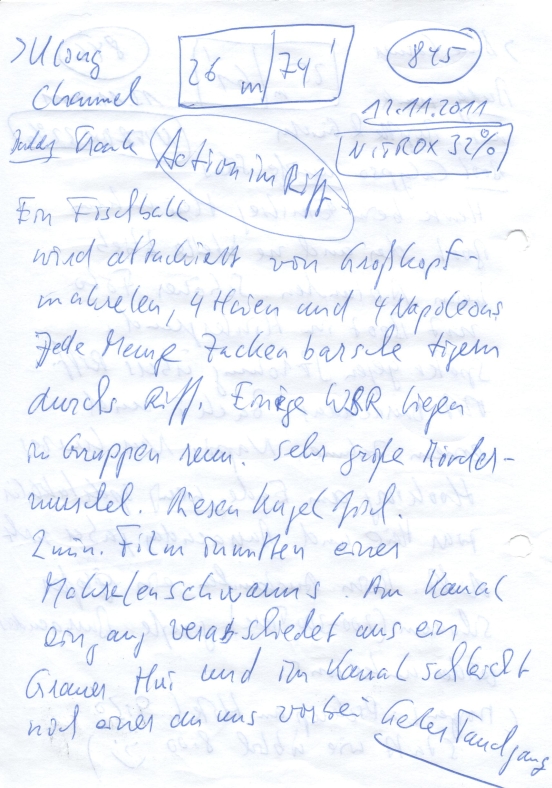 >Ulong
Channel
26 m/74'
845
12.11.2011
NITROX 32%
Buddy Frank
Action im Riff
Ein Fischball
wird attackiert von Großkopf-
makrelen, 4 Haien und 4 Napoleons
Jede Menge Zackenbarsche tigern
durchs Riff. Einige WSR liegen
in Gruppen rum. Sehr große Mörder-
muschel. Riesen Kugelfisch.
2 min. Film inmitten eines
Makrelenschwarms. Am Kanal
eingang verabschiedet uns ein
Grauer Hai und im Kanal schleicht
noch einer an uns vorbei
Tauchgang